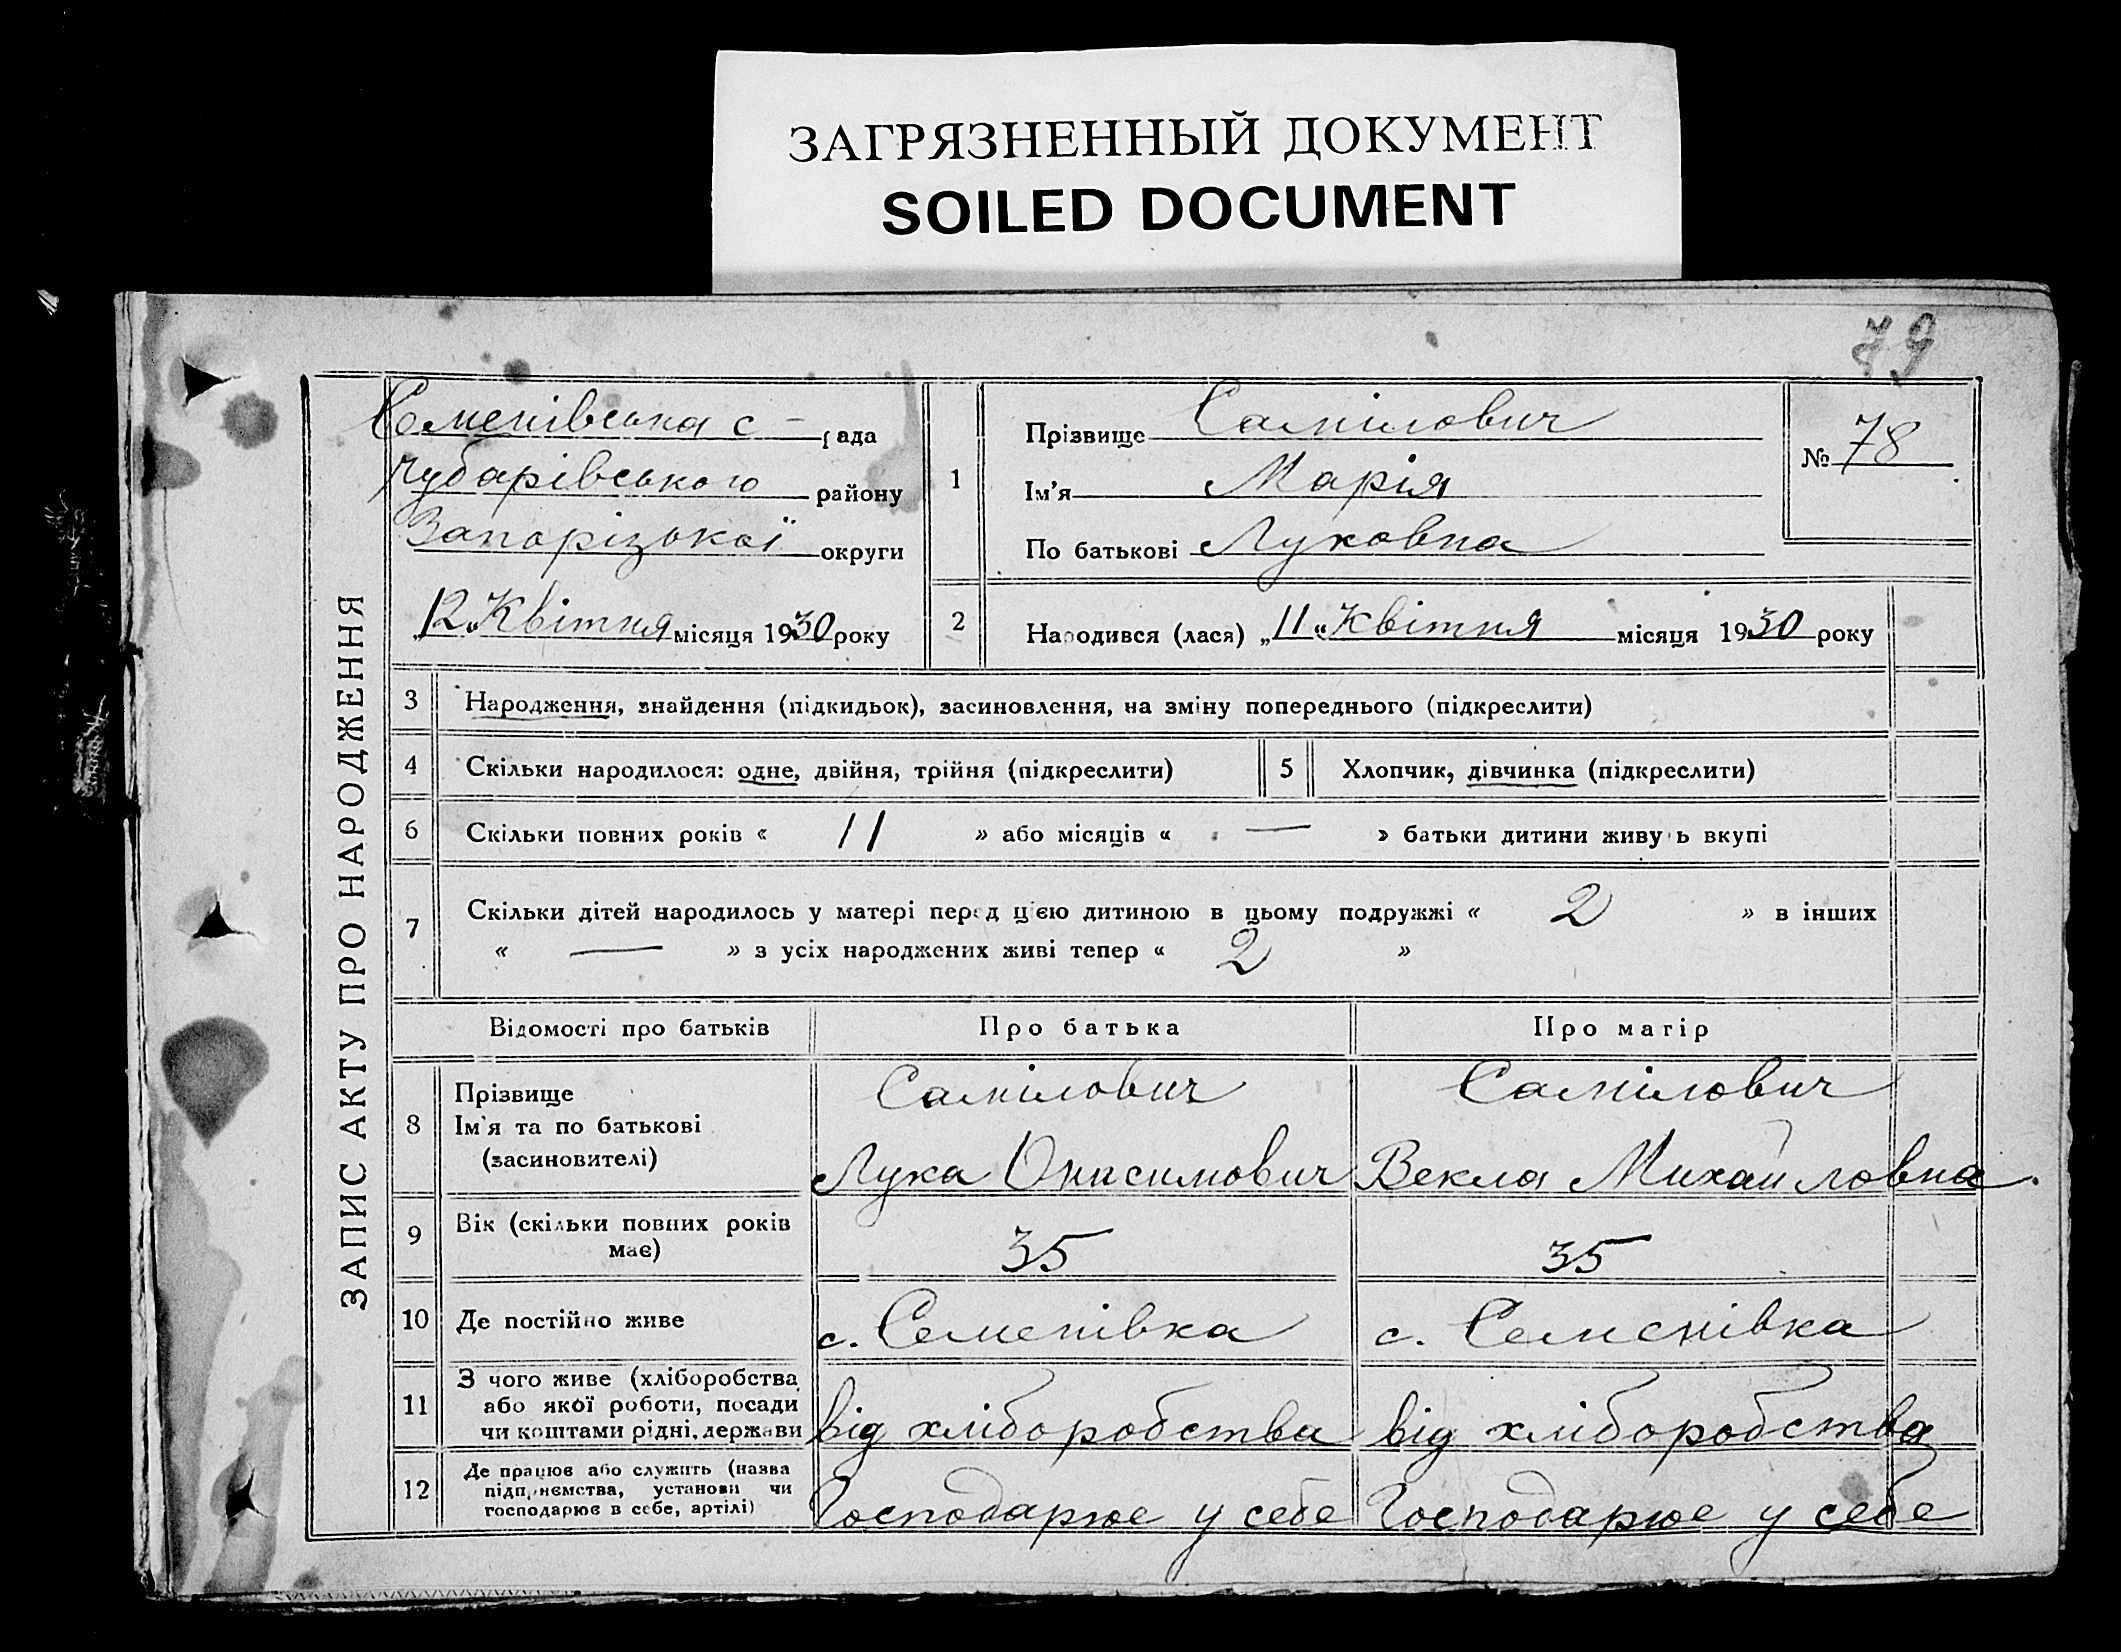 ЗАГРЯЗНЕННЫЙ ДОКУМЕНТ
SOILED DOCUMENT
79
ЗАПИС АКТУ ПРО НАРОДЖЕННЯ
Семенівська с - рада
Чубарівського району
Запорізької округи
„12“ Квітня місяця 1930 року
1
Прізвище Самілович
Ім'я Марія
По батькові Луковна
№ 78
2
Народився (лася) „11“ Квітня місяця 1930 року
3 Народження, знайдення (підкидьок), засиновлення, на зміну попереднього (підкреслити)
4 Скільки народилося: одне, двійня, трійня (підкреслити)
5 Хлопчик, дівчинка (підкреслити)
6 Скільки повних років « 11 » або місяців « — » батьки дитини живуть вкупі
7 Скільки дітей народилось у матері перед цією дитиною в цьому подружжі « 2 » в інших
« — » з усіх народжених живі тепер « 2 »
Відомості про батьків Про батька Про матір
8 Прізвище
Ім'я та по батькові
(засиновителі)
Самілович
Лука Онисимович
Самілович
Векла Михайловна.
9 Вік (скільки повних років
має)
35
35
10 Де постійно живе
с. Семенівка
с. Семенівка
11 З чого живе (хліборобства
або якої роботи, посади
чи коштами рідні, держави
від хліборобства
від хліборобства
12 Де працює або служить (назва
підприємства, установи чи
господарює в себе, артілі)
Господарює у себе
Господарює у себе